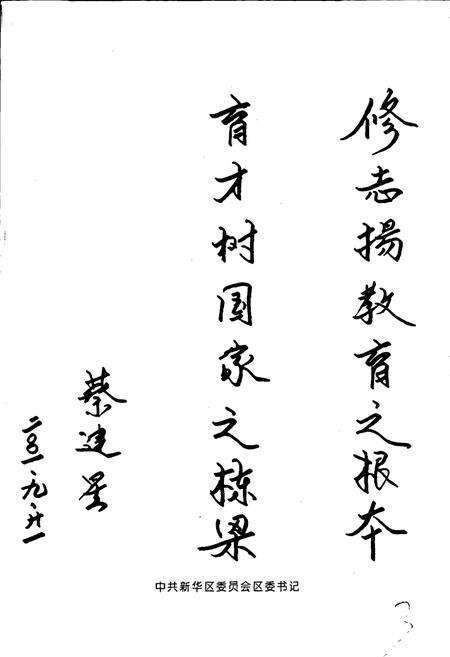 修志揚教育之根本
育才树国家之栋梁
蔡建星
二〇〇一.九.廿一
中共新华区委员会区委书记